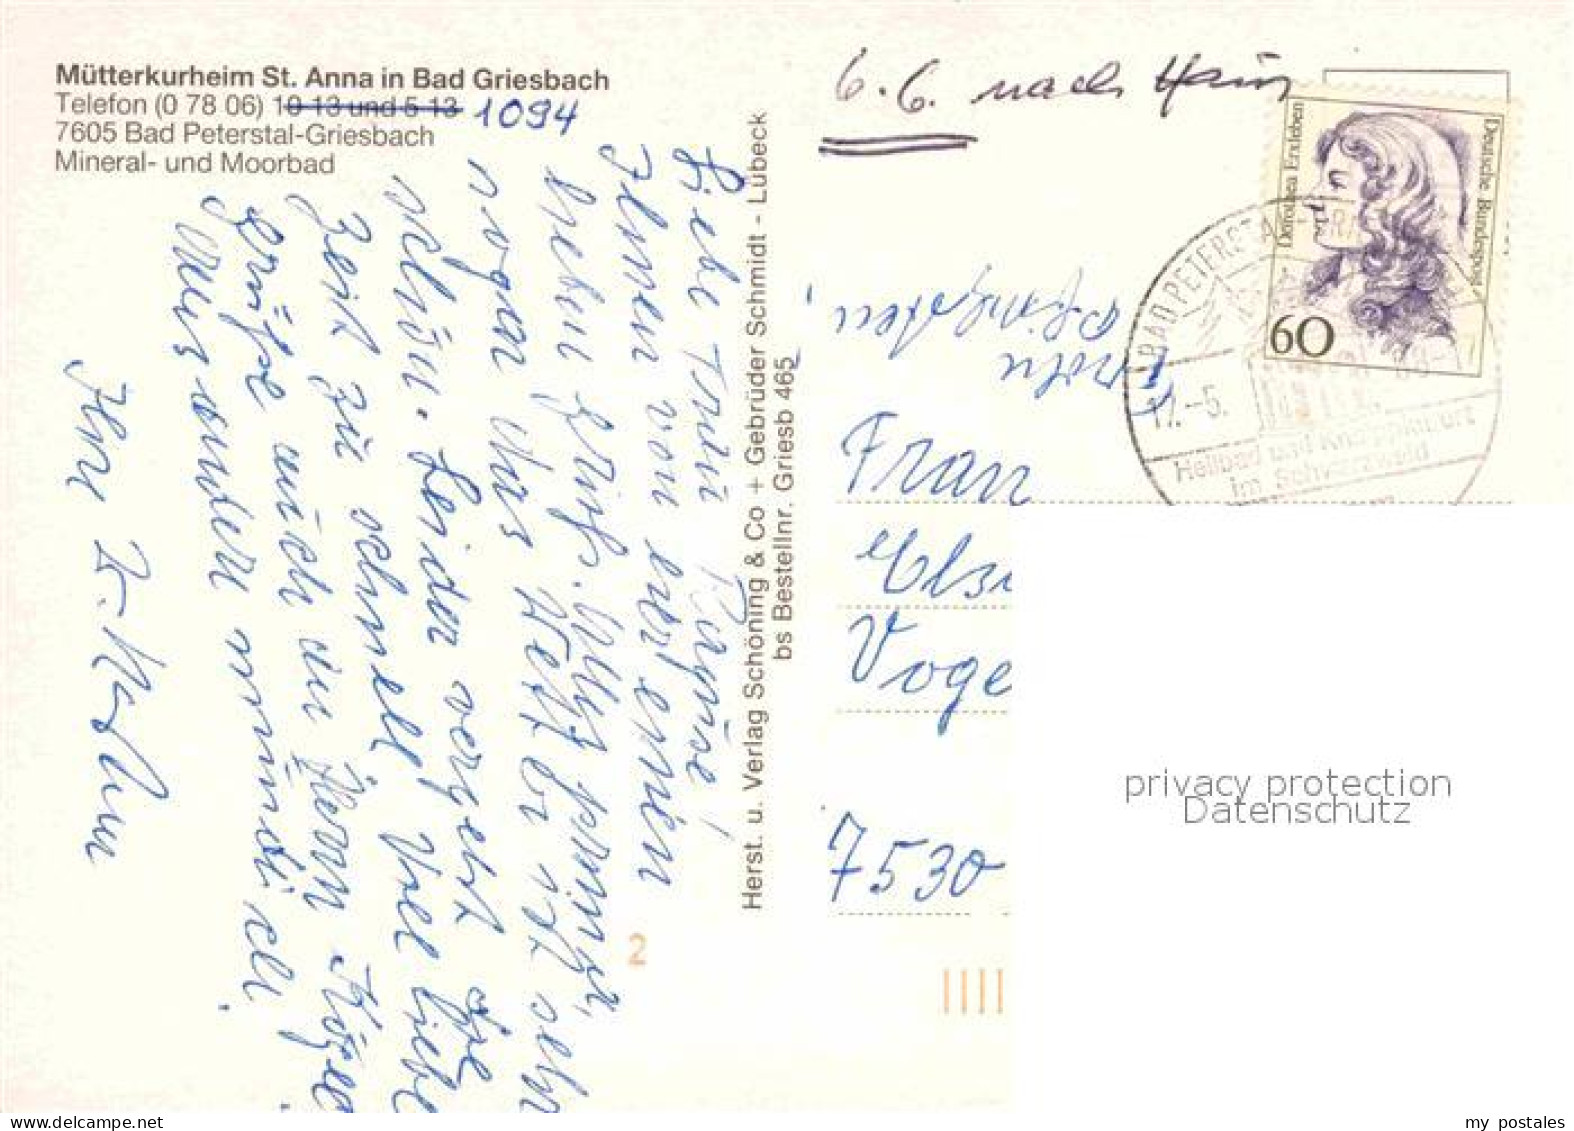 Mütterkurheim St. Anna in Bad Griesbach
Telefon (0 78 06) 10 13 und 5 13 1094
7605 Bad Peterstal-Griesbach
Mineral- und Moorbad
Liebe Frau
Ihnen von
lieben Gruß. Alles
sogar das Wetter ist sehr
schön. Leider vergeht die
Zeit zu schnell! Viele liebe
Grüße auch an Herrn
alles andere mündlich.
Ihre
Herst. u. Verlag Schöning & Co + Gebrüder Schmidt - Lübeck
bs Bestellnr. Griesb 465
6.6. nach
Dorothea Erxleben
Deutsche Bundespost
60
BAD PETERSTAL-GR
17.-5.
Heilbad und Kneippkurort
im Schwarzwald
Frau
Voge
7530
2
privacy protection
Datenschutz
my postales
www.delcampe.net